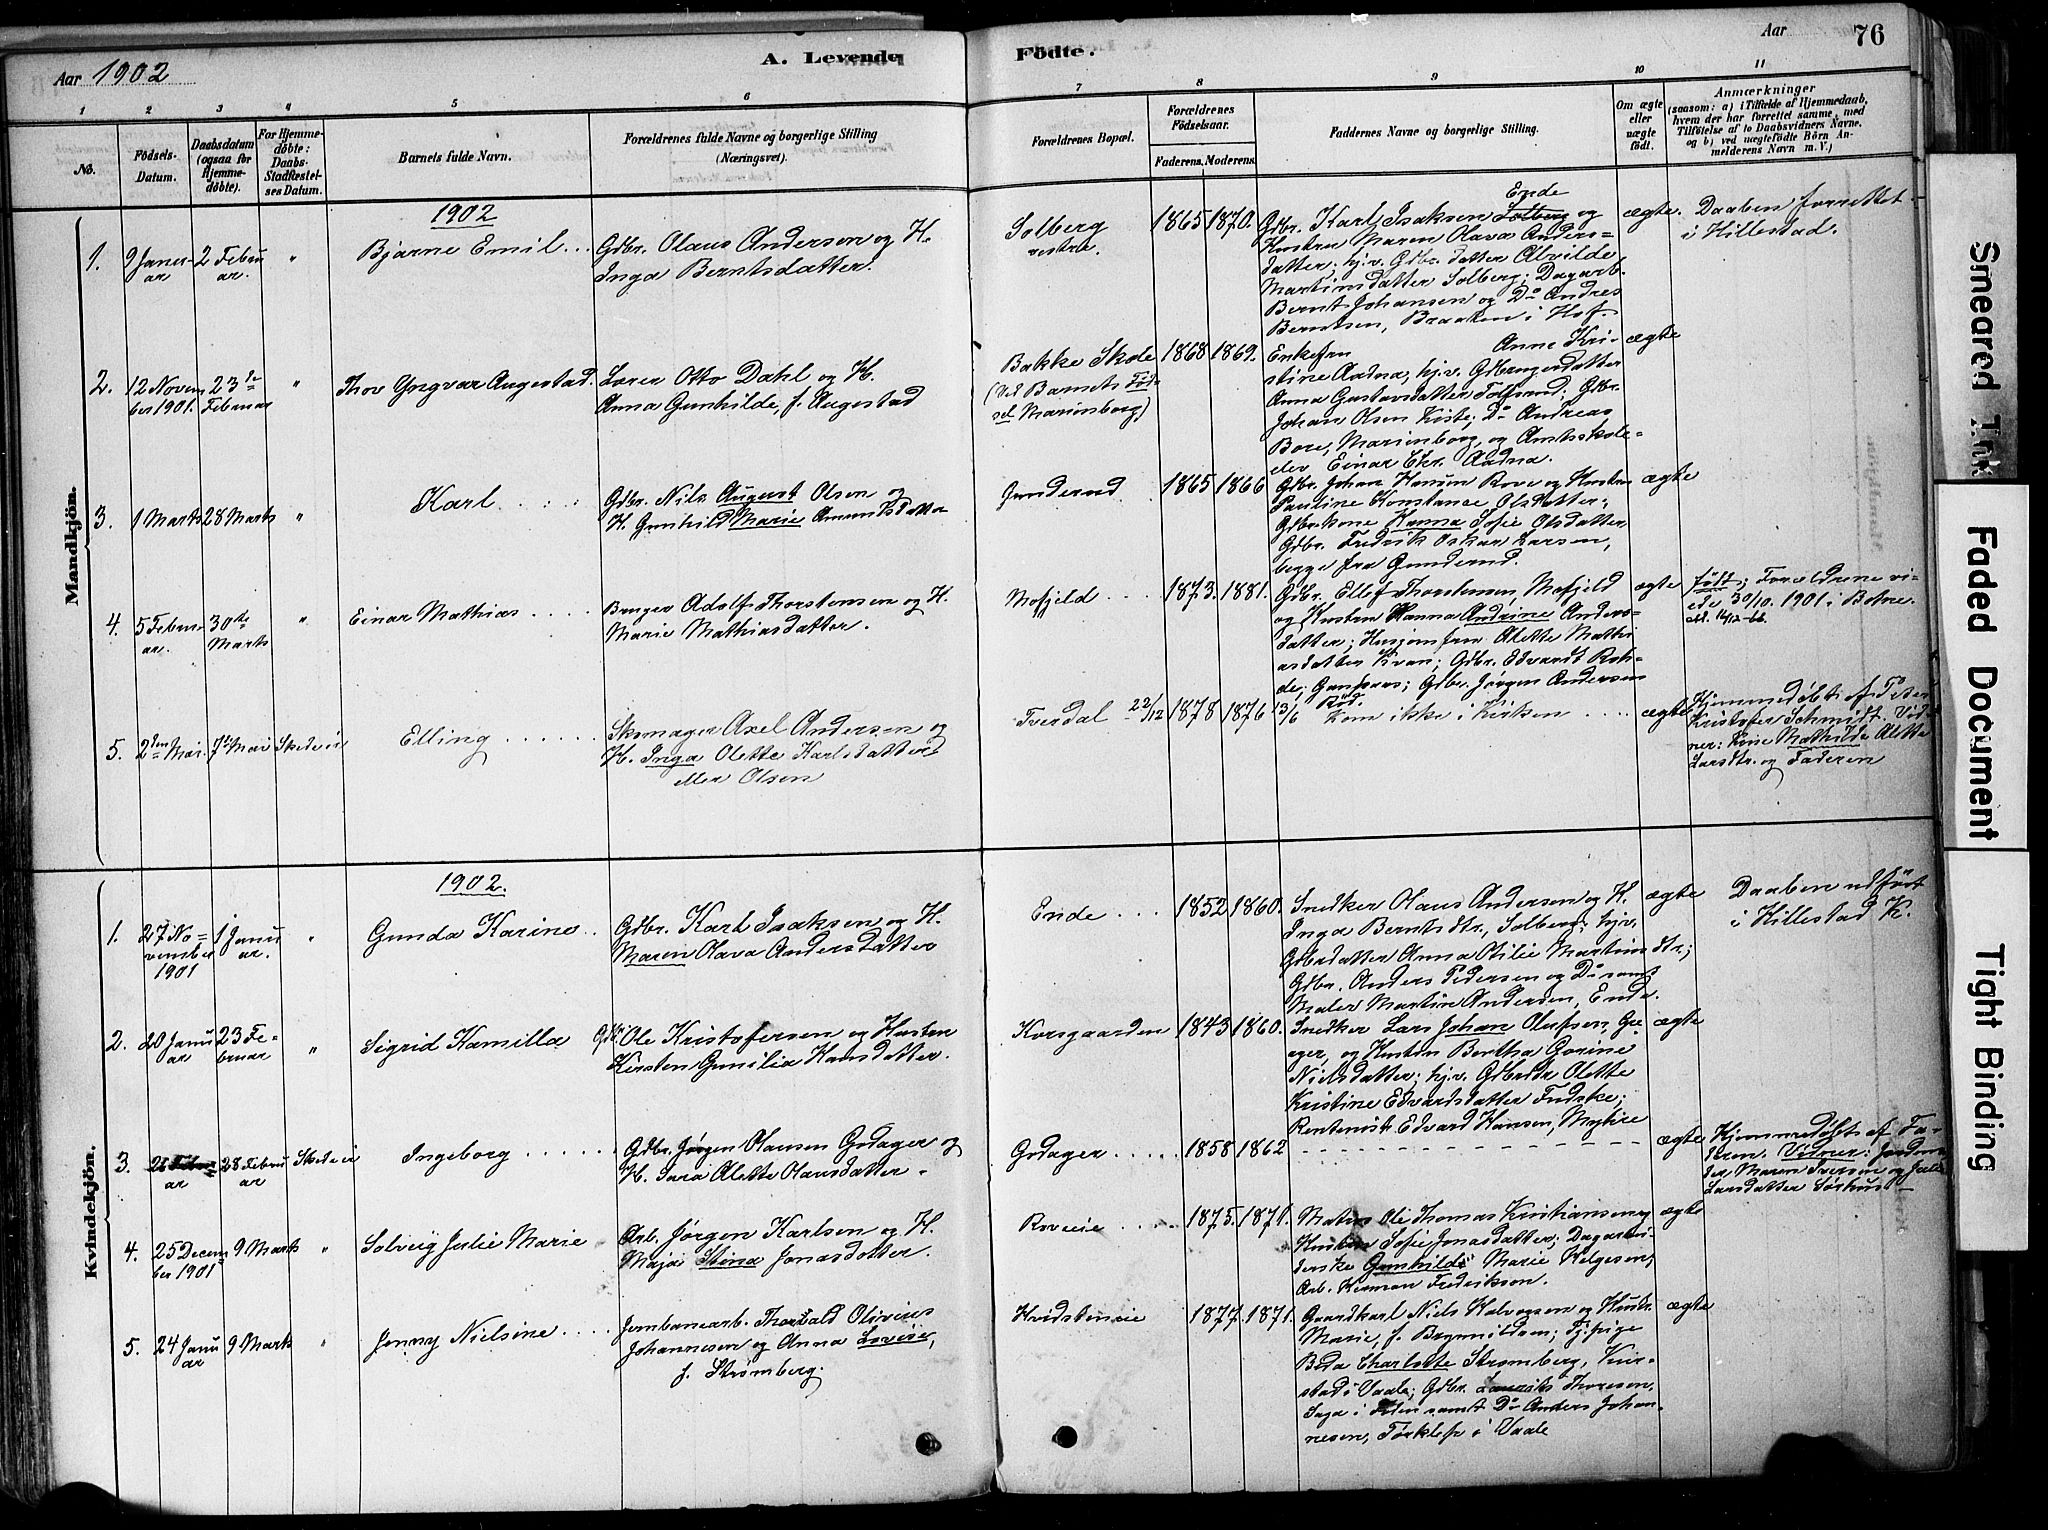 Aar 1902
A. Levende Födte.
Aar
76
1 2 3 4 5 6 7 8 9 10 11
No.
Födsels-Datum.
Daabsdatum (ogsaa for Hjemmedöbte).
For Hjemmedöbte: Daabs-Stadfæstelses Datum.
Barnets fulde Navn.
Forældrenes fulde Navne og borgerlige Stilling (Næringsvei).
Forældrenes Bopæl.
Forældrenes Födselsaar.
Faderens. Moderens.
Faddernes Navne og borgerlige Stilling.
Om ægte eller uægte födt.
Anmærkninger (saasom: a) i Tilfælde af Hjemmedaab, hvem der har forrettet samme, med Tilföielse af to Daabsvidners Navne, og b) ved uægtefödte Börn Anmelderens Navn m. V.)
Mandkjön.
1902
1. 9 Januar 2 Februar. " Bjarne Emil
Gdbr. Olaus Andersen og H.
Inga Berntsdatter.
Solberg vestre. 1865 1870.
Gdbr. Karl Isaksen Solberg Ende og
Hustru Maren Olava Anders=
datter; hj.v. Gdbr.datter Alvilde
Martinsdatter Solberg; Dagarb.
Bernt Johansen og Do Andres
Berntsen, Braaten i Hof.
ægte. Daaben forrettet
i Hillestad.
2. 12 November 1901. 23de Februar " Thov Yngvar Augestad.
Lærer Otto Dahl og H.
Anna Gunhilde, f. Augestad
Bakke Skole
(Ved Barnets Fød-
sel Marienborg)
1868 1869.
Enkefru Anne Kri-
stine Aadna, hj.v. Gdbrugerdatter
Anna Gustavsdatter Tolfsrud; Gbr.
Johan Olsen Kiste; Do Andreas
Bore, Marienborg, og Amtsskole=
elev Einar Chr. Aadna.
ægte
3. 1 Marts 28 Marts " Karl
Gdbr. Nils August Olsen og
H. Gunhild Marie Amundsdatter
Gunderud. 1865 1866
Gdbr. Johan Hansen Rove og Hustru
Pauline Konstanse Olsdatter;
Gdbrkone Hanna Sofie Olsdatter
Gdbr. Fredrik Oskar Larsen,
begge fra Gunderud.
ægte
4. 5 Februar. 30te Marts " Einar Mathias
Bruger Adolf Thorstensen og H.
Marie Mathiasdatter.
Mofjeld 1873. 1881.
Gdbr. Ellef Thorstensen, Mofjeld
og Hustru Hanna Andrine Anders=
datter; Husjomfru Alette Mathi
asdatter Kvan; Gdbr. Edvardt Roh-
de, ; Gdbr. Jørgen Andersen
Rød.
ægte født; Forældrene vi-
ede 30/10. 1901 i Botne.
5. 2den Mai. 7de Mai Skedde ei Elling
Skomager Axel Andersen og
H. Inga Olette Karlsdatter
eller Olsen
Tverdal 22/12 1878 1876 13/6
Kom ikke i Kirken
ægte Hjemmedøbt af Peter
Kristofer Schmidt. Vid
ner: Kone Mathilde Olette
Larsdtr. og Faderen
Kvindekjön.
1902.
1. 27 November 1901 1 Januar. " Gunda Karine
Gdbr. Karl Isaksen og H.
Maren Olava Andersdatter
Ende 1852 1860.
Snedker Olaus Andersen og H.
Inga Berntsdtr., Solberg; hj.v.
Gdbrdatter Anna Otilie Martinsdtr;
Gdbr. Anders Pedersen og Do samt
Maler Martin Andersen, Ende.
ægte Daaben udført
i Hillestad K.
2. 20 Januar 23 Februar " Sigrid Kamilla
Gdbr. Ole Kristofersen og Hustru
Kirsten Gunilia Hansdatter.
Korsgaarden 1843 1860.
Snedker Lars Johan Olufsen, Gre
ager, og Hustru Bertha Gorine
Nielsdatter; hj.v. Gdbrdtr Olette
Kristine Edvardsdatter Fudske;
Rentenist Edvard Hansen, Myhre
ægte
3. 28 Februar 28 Februar Skedde ei Ingeborg
Gdbr. Jørgen Olausen Godager og
H. Sara Alette Olausdatter.
Godager 1858 1862
ægte Hjemmedøbt af Fa-
deren. Vidner: Jordmo
der Maren Iversen og Julie
Larsdatter Sørhus
4. 25 December 1901 9 Marts " Solveig Julie Marie
Arb. Jørgen Karlsen og H.
Maja Stina Jonasdatter.
Roveeie 1875. 1871.
Matros Ole Thomas Kristiansen og
Hustru Sofie Jonasdatter; Dagarbei-
derske Gunhilde Marie Helgesen;
Arb. Herman Fredriksen.
ægte
5. 24 Januar 9 Marts " Jenny Nielsine
Jernbanearb. Thorvald Olivius
Johannesen og Anna Lovise,
f. Strømberg.
Hvidsteneie 1877. 1871.
Gaardkarl Niels Halvorsen og Hustr.
Marie, f. Brynildsen; Tj.pige
Beda Charlotte Strømberg, Kuir-
stad i Vaale; Gdbr. Laurits Thoresen,
i samt Do Anders Johan-
nesen, Tørklep i Vaale
ægte
Smeared Ink
Faded Document
Tight Binding